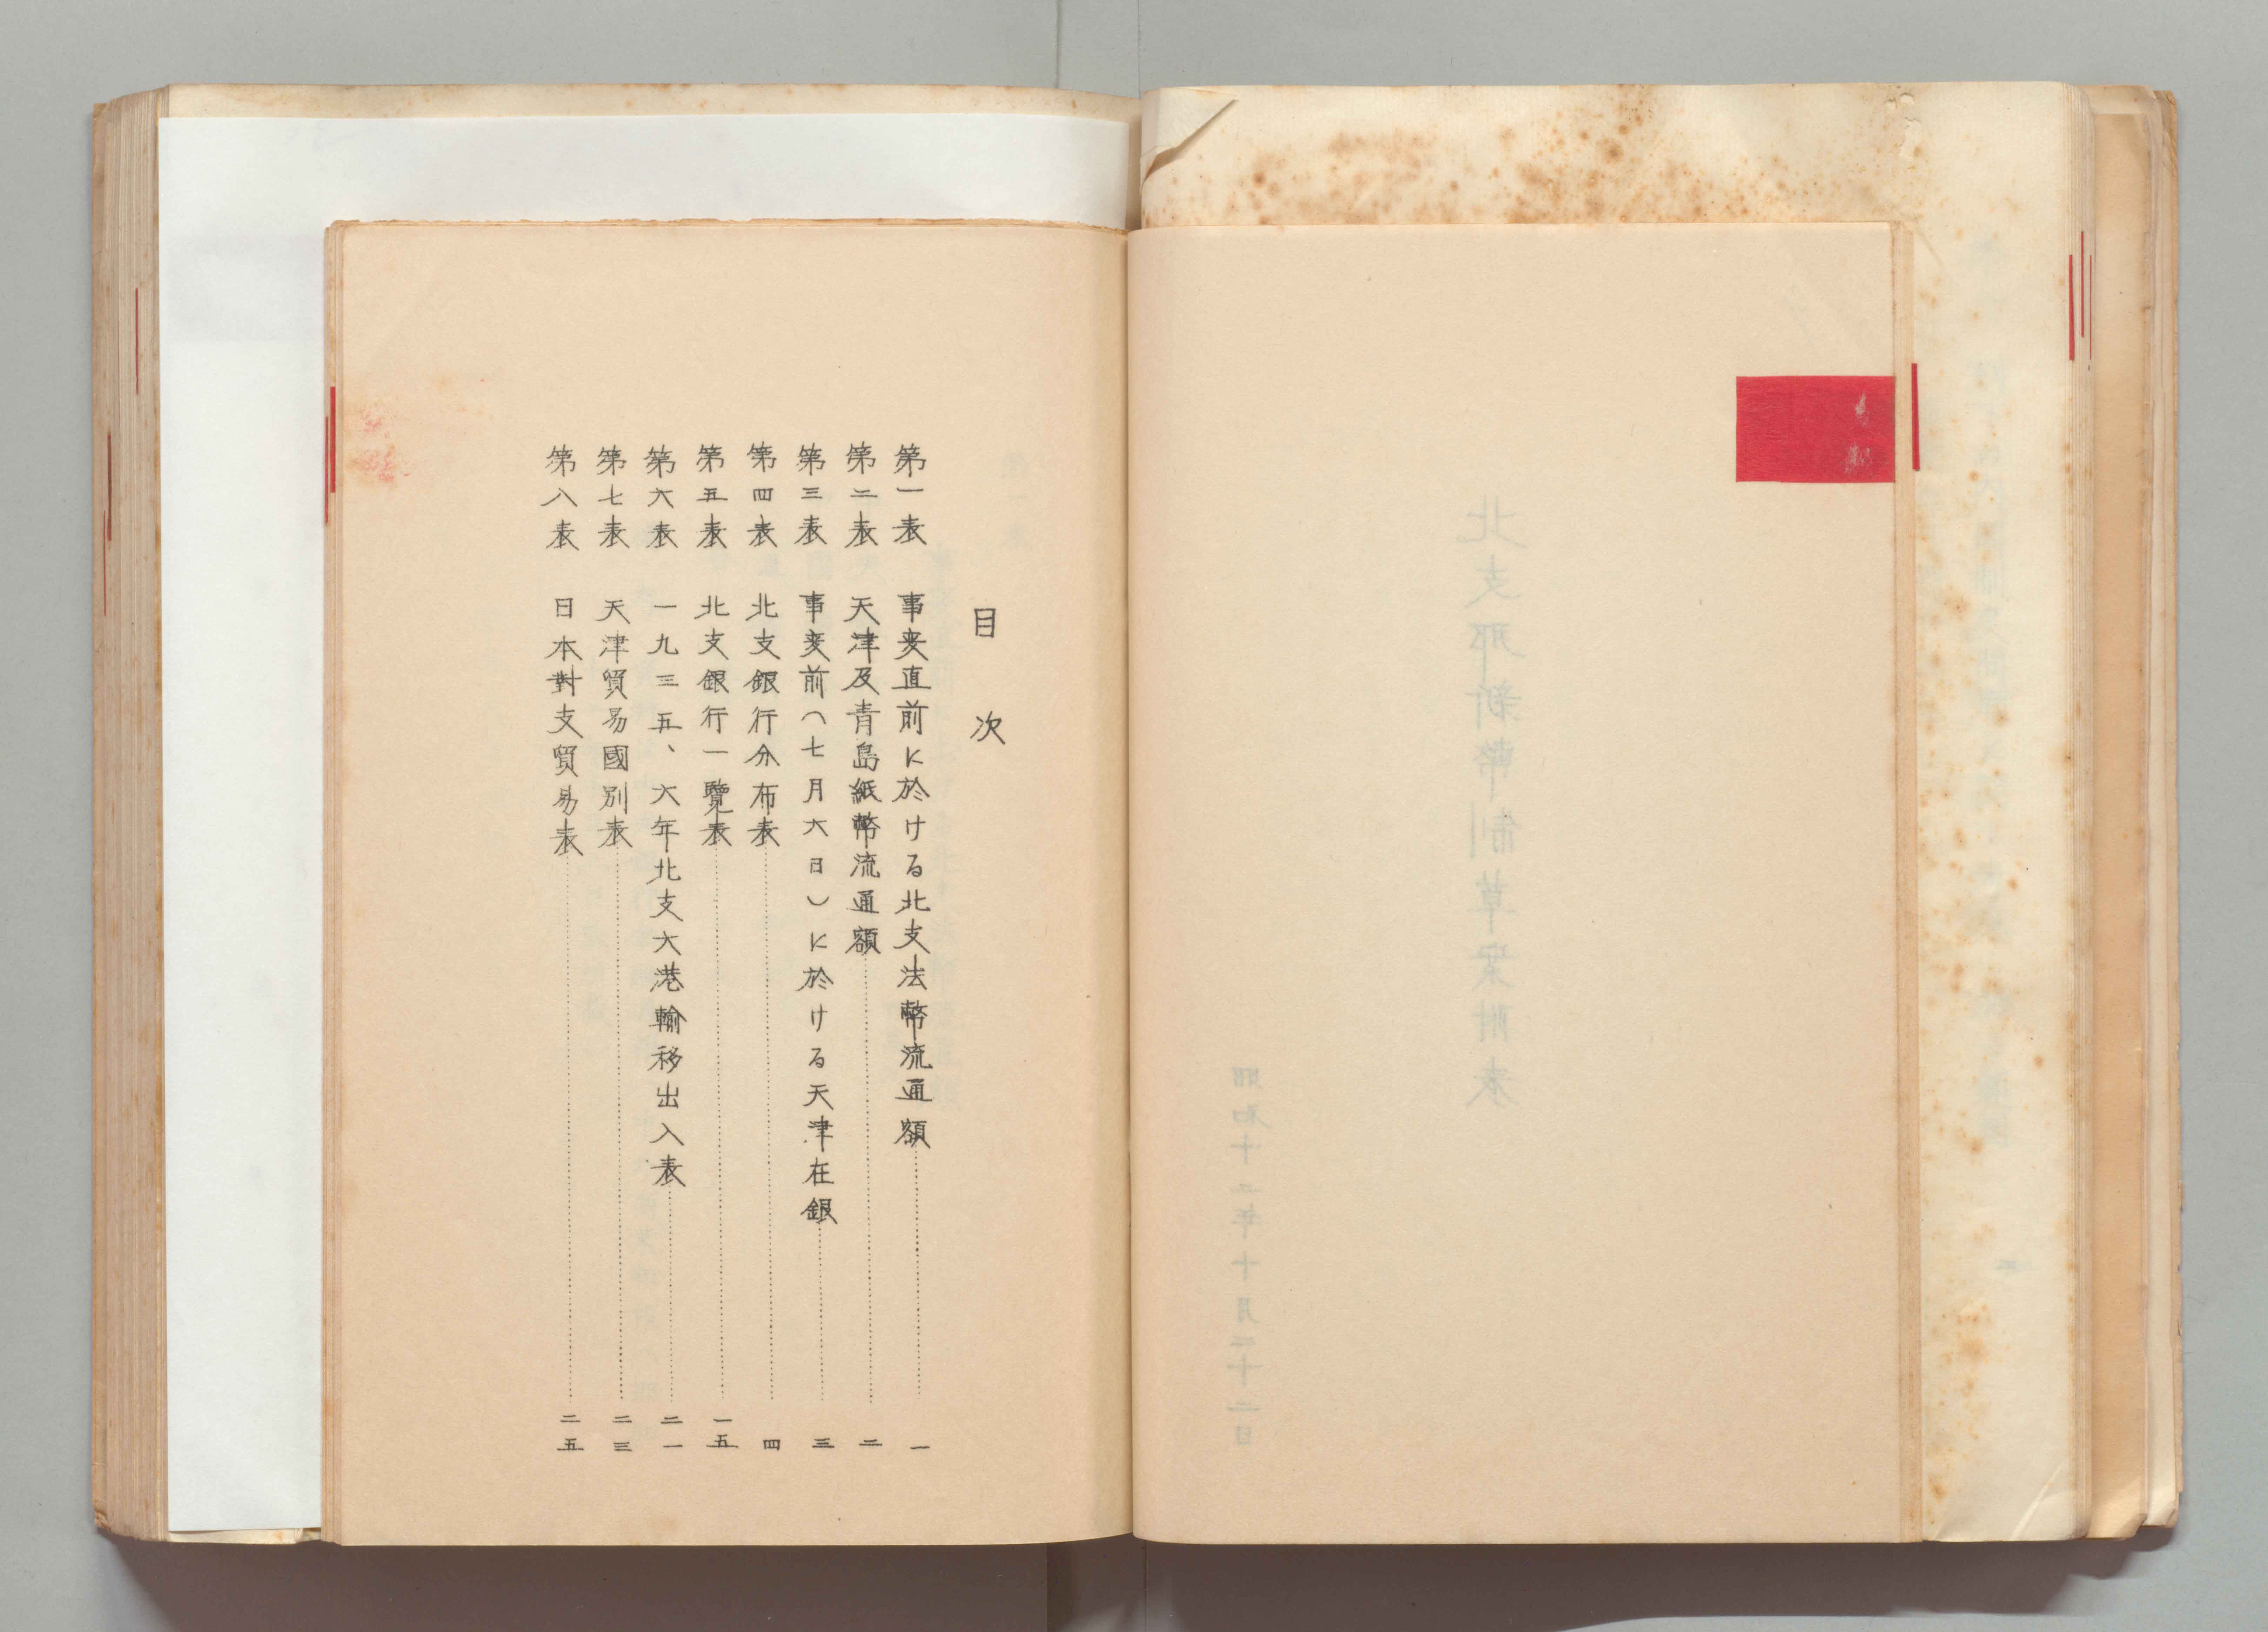 北支那新幣制草案附表
昭和十二年十月二十二日
目次
第一表 事変直前に於ける北支法幣流通額 一
第二表 天津及青島紙幣流通額 二
第三表 事変前(七月六日)に於ける天津在銀 三
第四表 北支銀行分布表 四
第五表 北支銀行一覽表 一五
第六表 一九三五、六年北支六港輸移出入表 二一
第七表 天津貿易國別表 二三
第八表 日本對支貿易表 二五